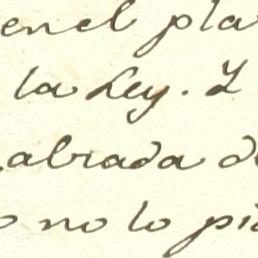 en el pla
la Ley. Y
abrada de
o no lo pi